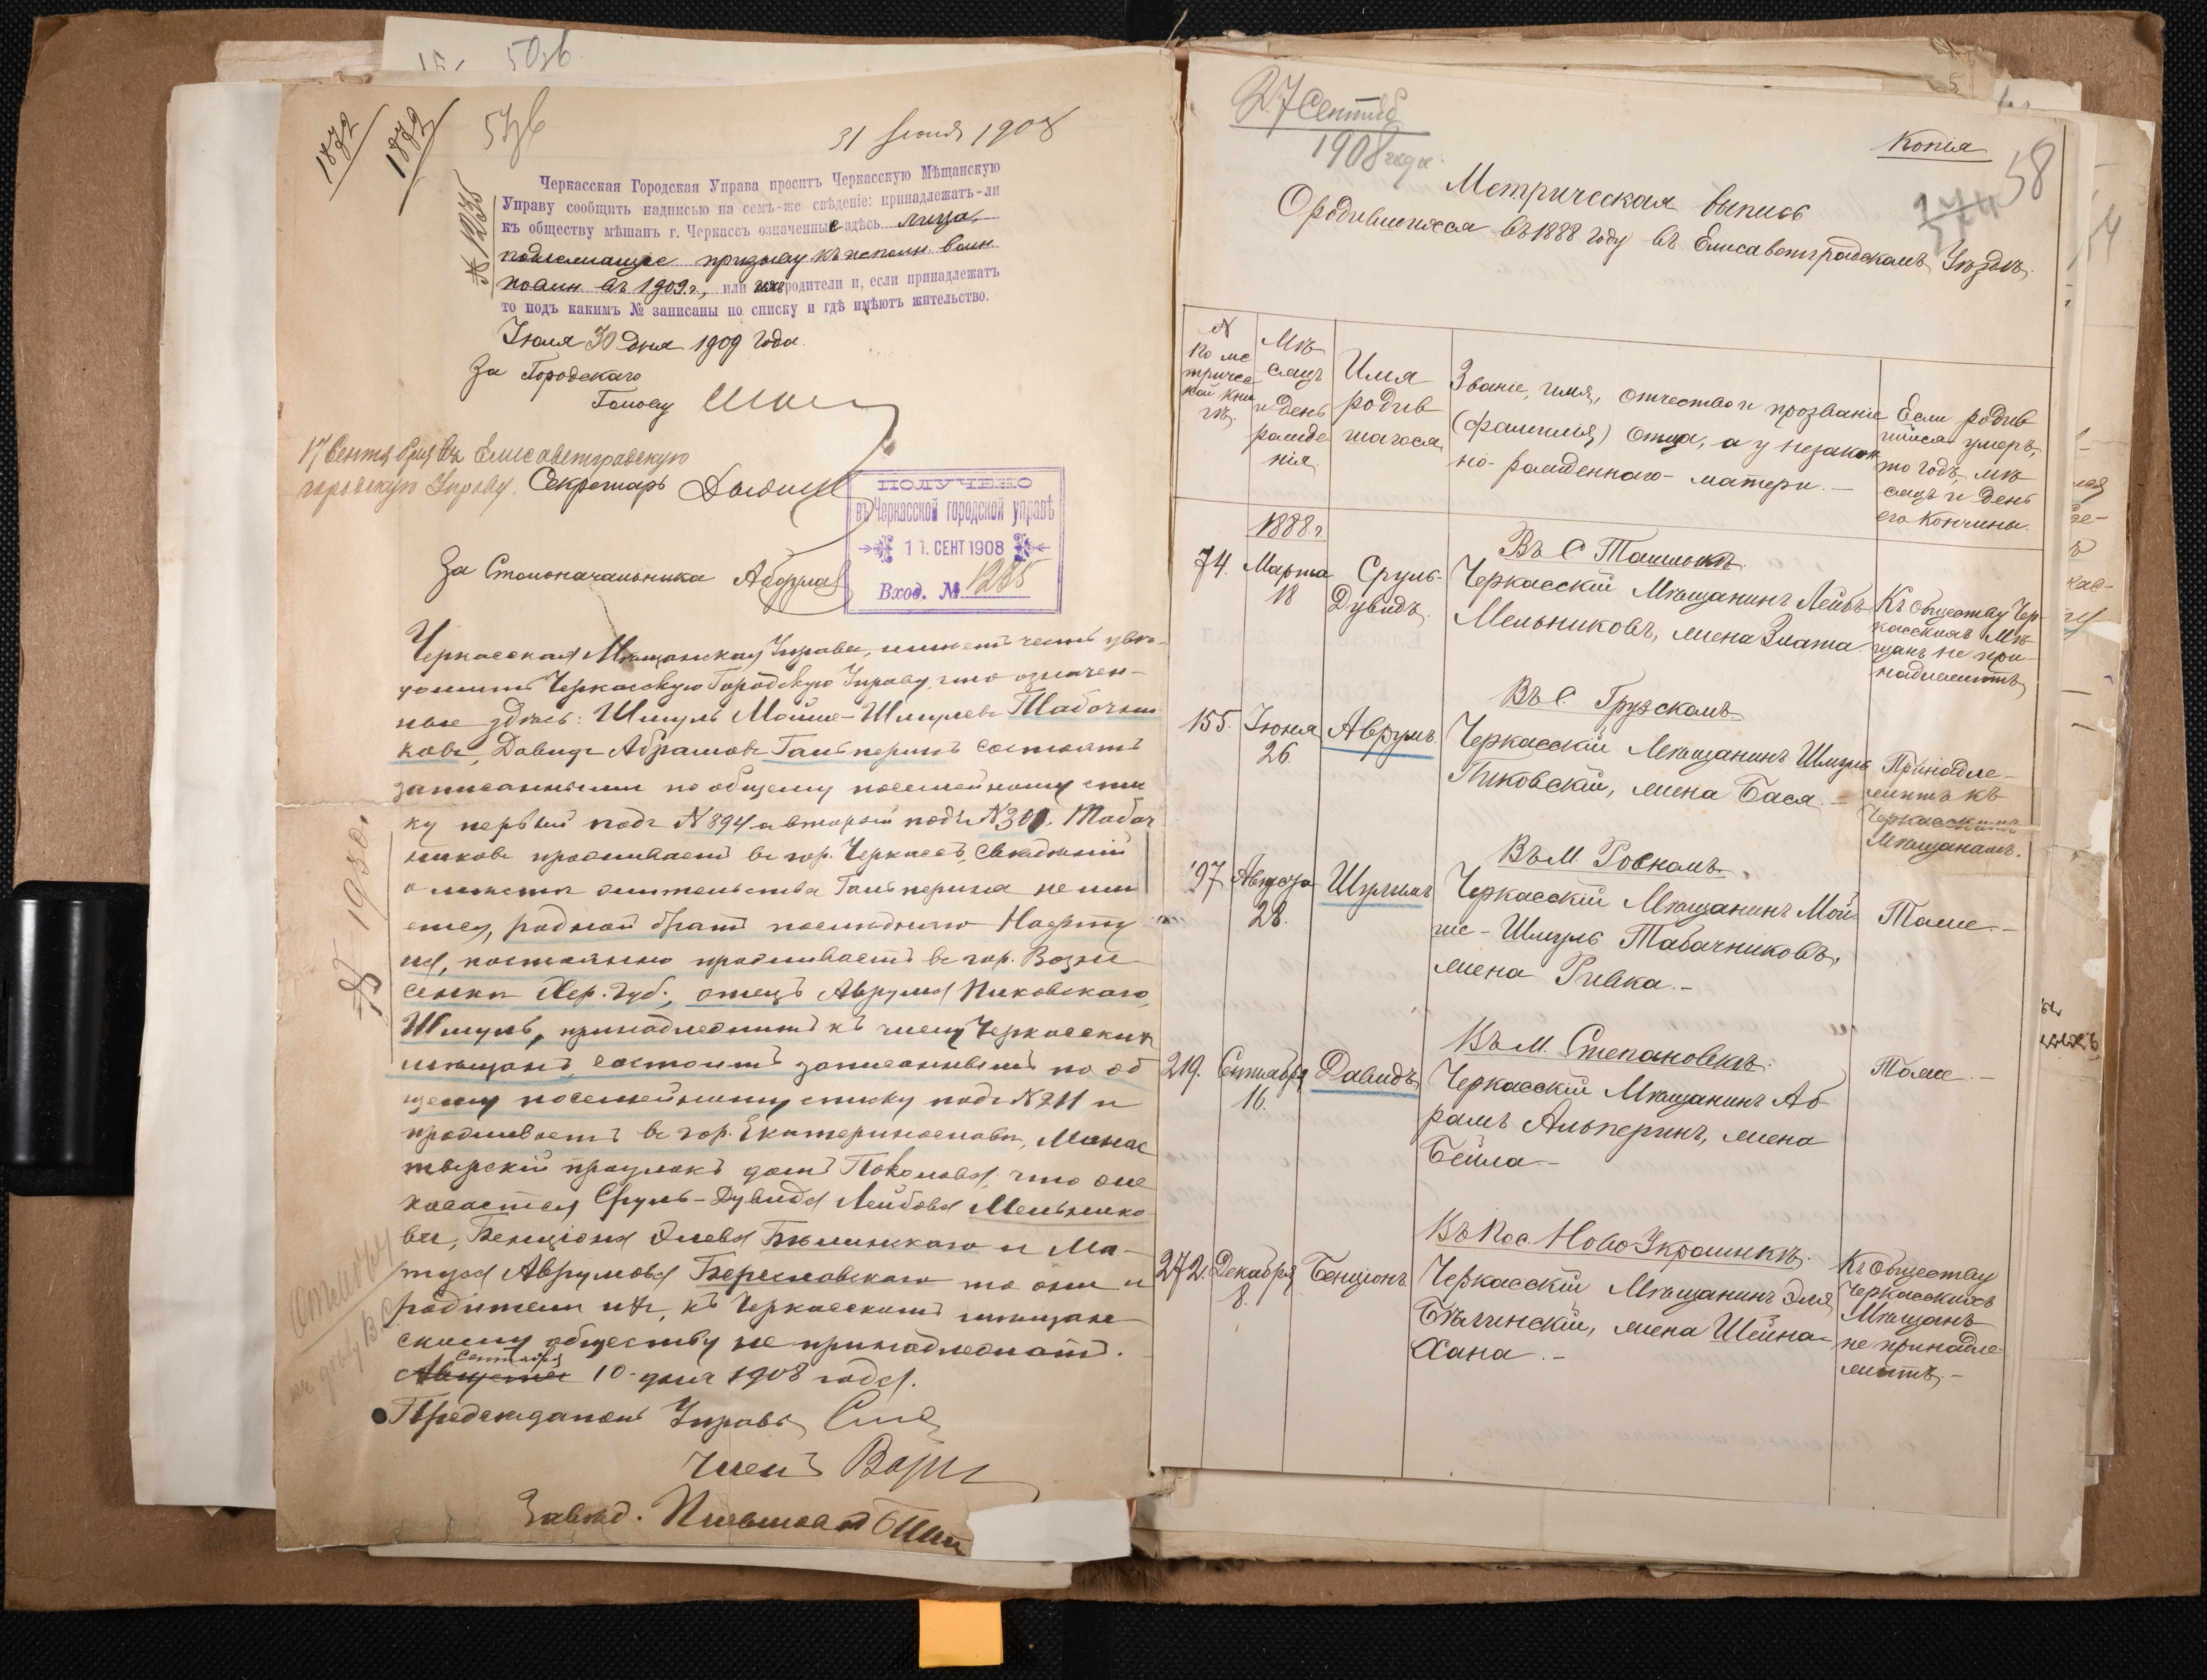 50зв
1872
1889
57зб
31 Июля 1908
№ 1235
Черкасская Городская Управа проситъ Черкасскую Мѣщанскую
Управу сообщить надписью на семъ-же свѣденіе: принадлежатъ-ли
къ обществу мѣщанъ г. Черкассъ означенные здѣсь лица,
подлежащіе призыву къ исполн. воин.
повин въ 1909 г., или ихъ родители и, если принадлежатъ
то подъ какимъ № записаны по списку и гдѣ имѣютъ жительство.
Іюля 30 дня 1909 года.
За Городскаго
Голову
17 Сентября въ Елисаветградскую
городскую Управу.
Секретарь
ПОЛУЧЕНО
въ Черкасской городской управѣ
11. СЕНТ 1908
Вход. № 1235
За Столоначальника
Черкасская Мѣщанская Управа, имѣетъ честь увѣ-
домить Черкасскую Городскую Управу, что означен-
ные здѣсь: Шмуль Мойше-Шмулевъ Табачни
ковъ, Давидъ Абрамовъ Гальперинъ состоятъ
записанными по общему посемейному спи
ску первый подъ №394 а второй подъ №301. Табач
никовъ проживаетъ въ гор. Черкассъ, свѣдѣній
о мѣстѣ жительства Гальперина не имѣ
ется, родной братъ послѣдняго Нафту
ла, постоянно проживаетъ въ гор. Возне
сенкѣ Хер. губ., отецъ Аврума Пиковскаго,
Шмуль, принадлежитъ къ числу Черкасскихъ
мѣщанъ, состоитъ записаннымъ по об
щему посемейному списку подъ №211 и
проживаетъ въ гор. Екатеринославѣ, Монас
тырскій проулокъ домъ Поколова, что же
касается Сруль-Дувида Лейбова Мельнико
ва, Бенціона Элева Бѣлинскаго и Ма-
туса Аврумова Береславскаго то они и
родители ихъ, къ Черкасскому мѣщан
скому обществу не принадлежатъ.
Сентября
Августа 10 дня 1908 года.
Предсѣдатель Управы
Членъ
Завѣд. Письмовод
№ 1930.
27 Сентяб
1908 года.
Копія
58
Метрическая выпись
О родившихся въ 1888 году въ Елисаветградскомъ Уѣздѣ.
№
по ме
тричес
кой кни
гѣ.
Мѣ
сяцъ
и день
рожде
нія.
Имя
родив
шагося
Званіе, имя, отчество и прозваніе
(фамилія) отца, а у незакон
но-рожденнаго - матери. —
Если родив
шійся умеръ,
то годъ, мѣ
сяцъ и день
его кончины.
1888 г.
Въ С. Ташлыкѣ.
74. Марта 18 Сруль-Дувидъ. Черкасскій Мѣщанинъ Лейбъ
Мельниковъ, жена Злата.
Къ обществу Чер
касскихъ Мѣ
щанъ не при
надлежитъ
Въ С. Грузскомъ.
155. Іюня 26. Аврумъ. Черкасскій Мѣщанинъ Шмуль
Пиковскій, жена Бася. —
Принадле-
житъ къ
Черкасскимъ
Мѣщанамъ.
Въ М. Ровномъ.
197 Августа 28. Шулимъ Черкасскій Мѣщанинъ Мой
ше-Шмуль Табачниковъ,
жена Ривка. —
Тоже. —
Въ М. Степановкѣ.
219. Сентября 16. Давидъ Черкасскій Мѣщанинъ Аб
рамъ Альперинъ, жена
Бейла. —
Тоже. —
Въ пос. Ново-Украинкѣ.
272. Декабря 8. Бенціонъ Черкасскій Мѣщанинъ Эля
Бѣлинскій, жена Шейна-
Хана. —
Къ обществу
Черкасскихъ
Мѣщанъ
не принадле-
житъ. —